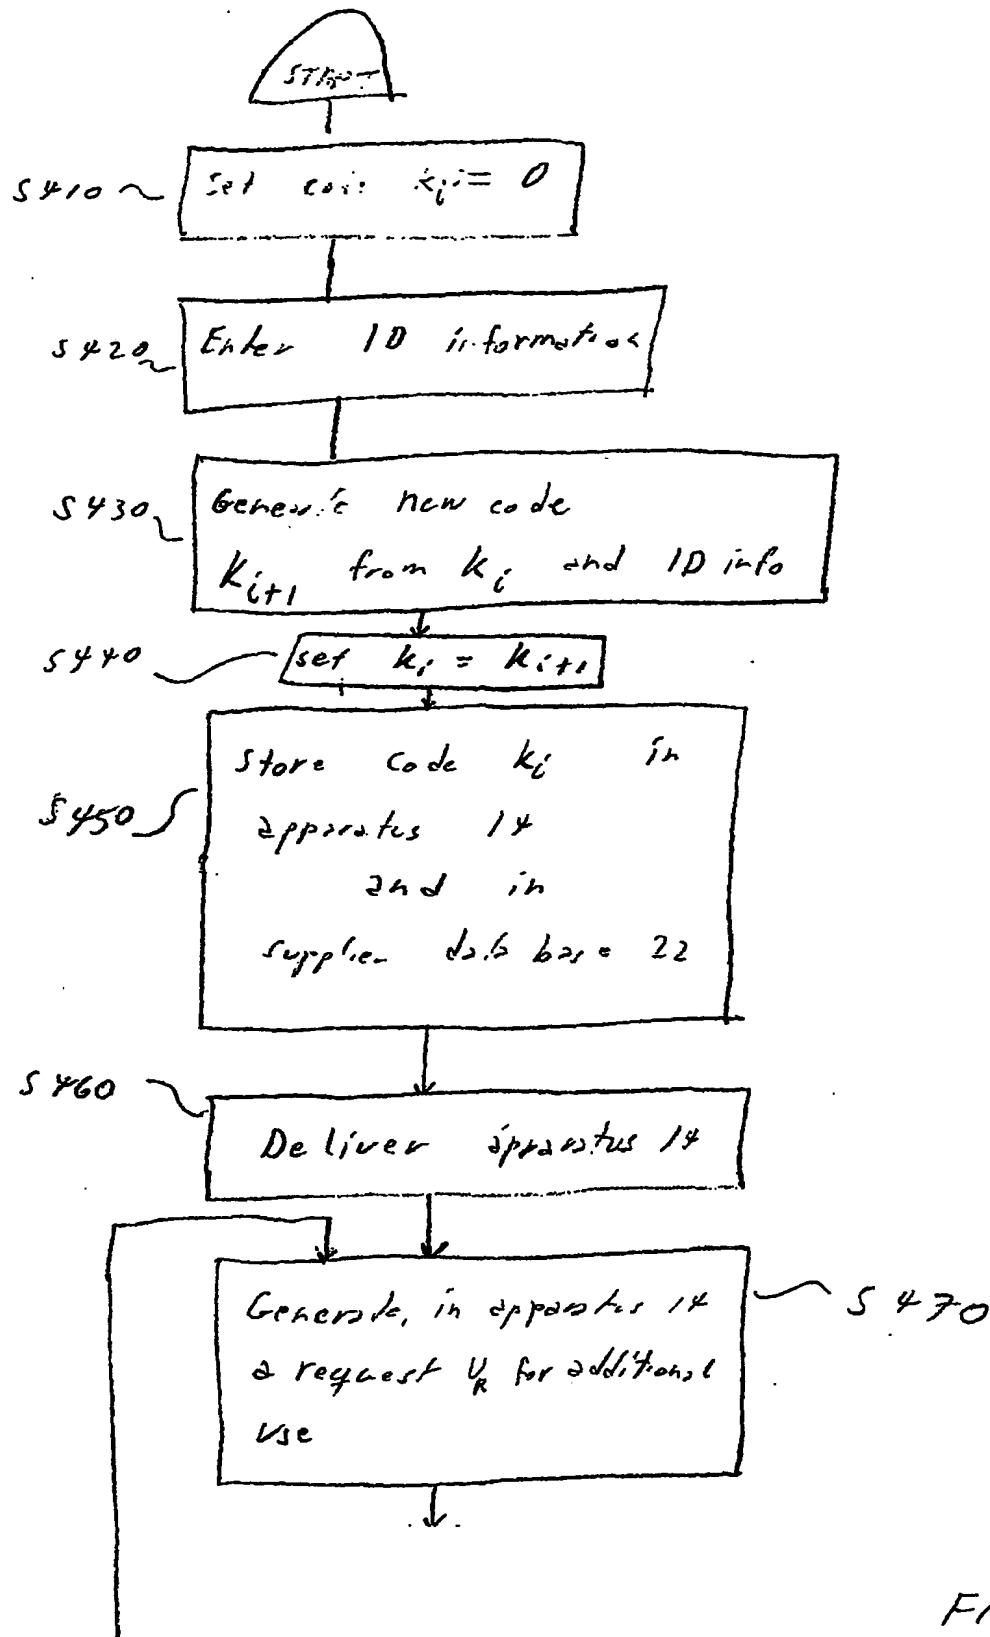 START
S410
Set k_i = 0
S420
Enter ID information
S430
Generate new code
K_{i+1} from k_i and ID info
S440
set k_i = k_{i+1}
S450
Store code k_i in
apparatus 14
and in
supplier data base 22
S460
Deliver apparatus 14
S470
Generate, in apparatus 14
a request U_R for additional
use